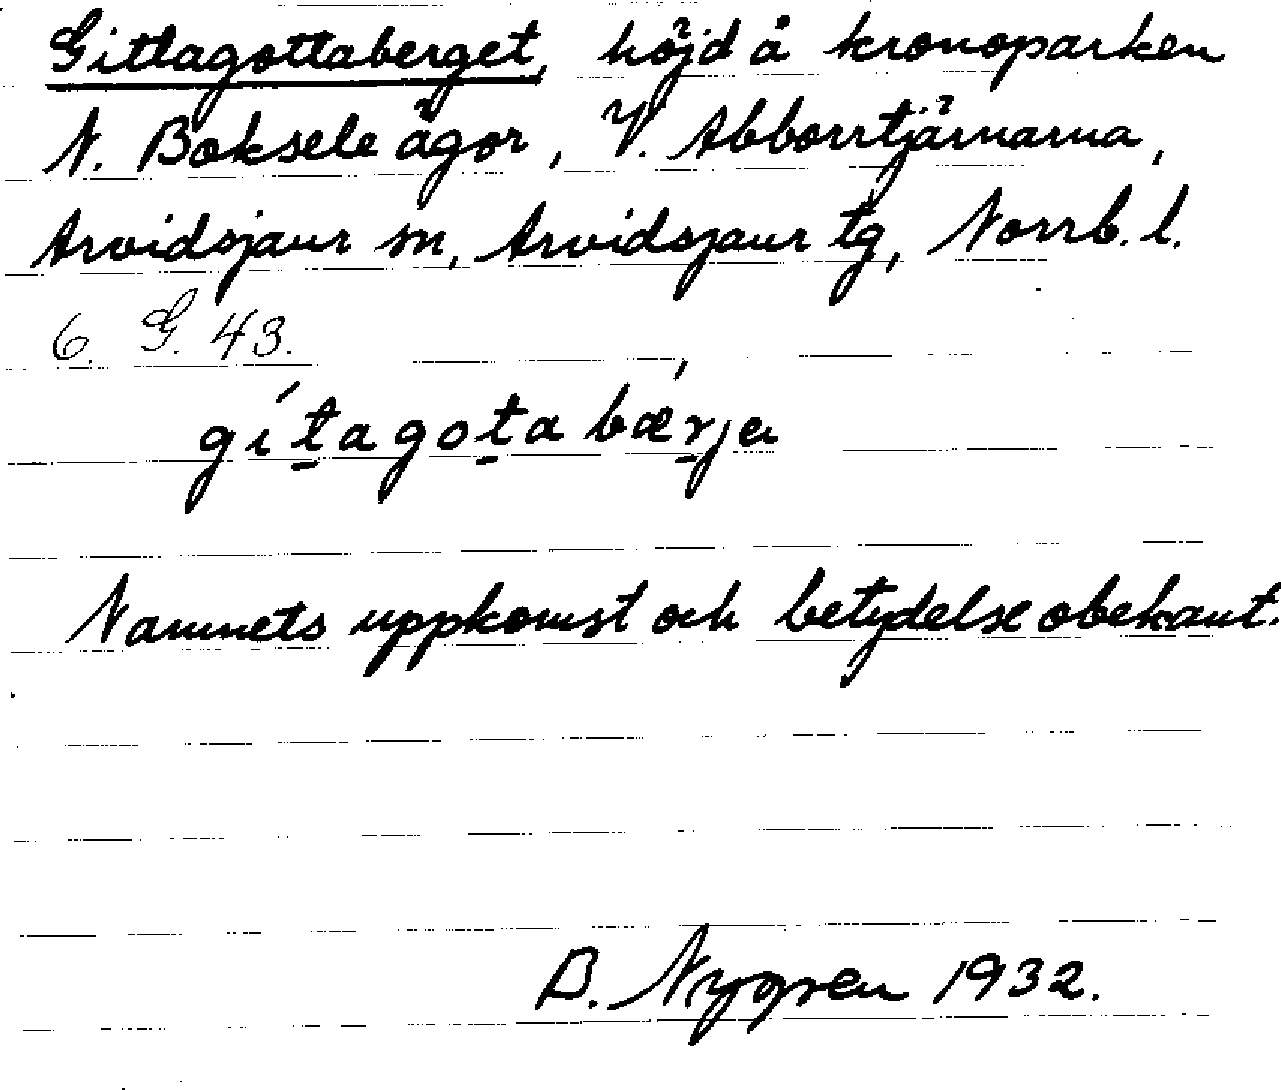 Gittagottaberget, höjd å kronoparken
N. Boksele ägor, V. Abborrtjärnarna,
Arvidsjaur sn, Arvidsjaur tg, Norrb. l.
6. G. 43.
gítagotabǽrja
Namnets uppkomst och betydelse obekant.
B. Nygren 1932.